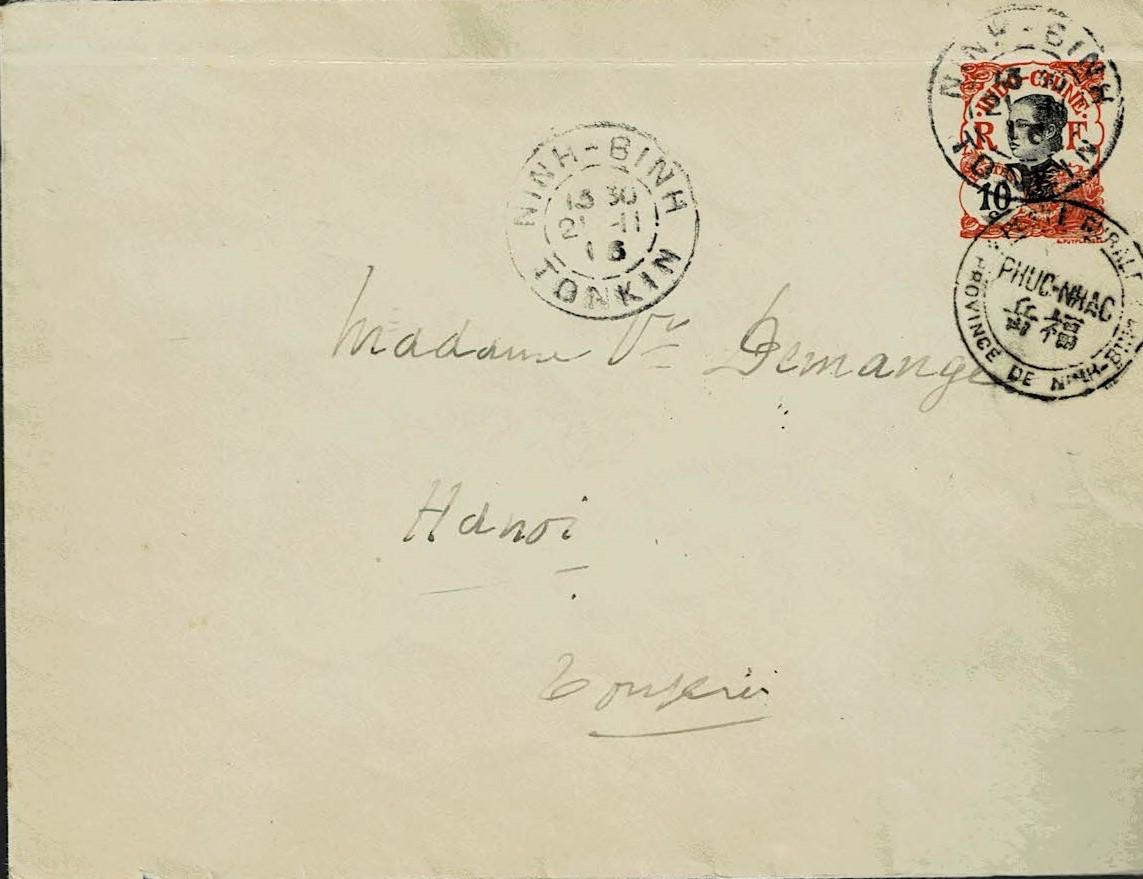 NINH-BINH
13 30
21 -11
16
TONKIN
INDO-CHINE
R F
10
NINH-BINH
TONKIN
POSTE RURALE
PHUC-NHAC
岳福
PROVINCE DE NINH-BINH
Madame Vve Demange
Hanoi
Tonkin